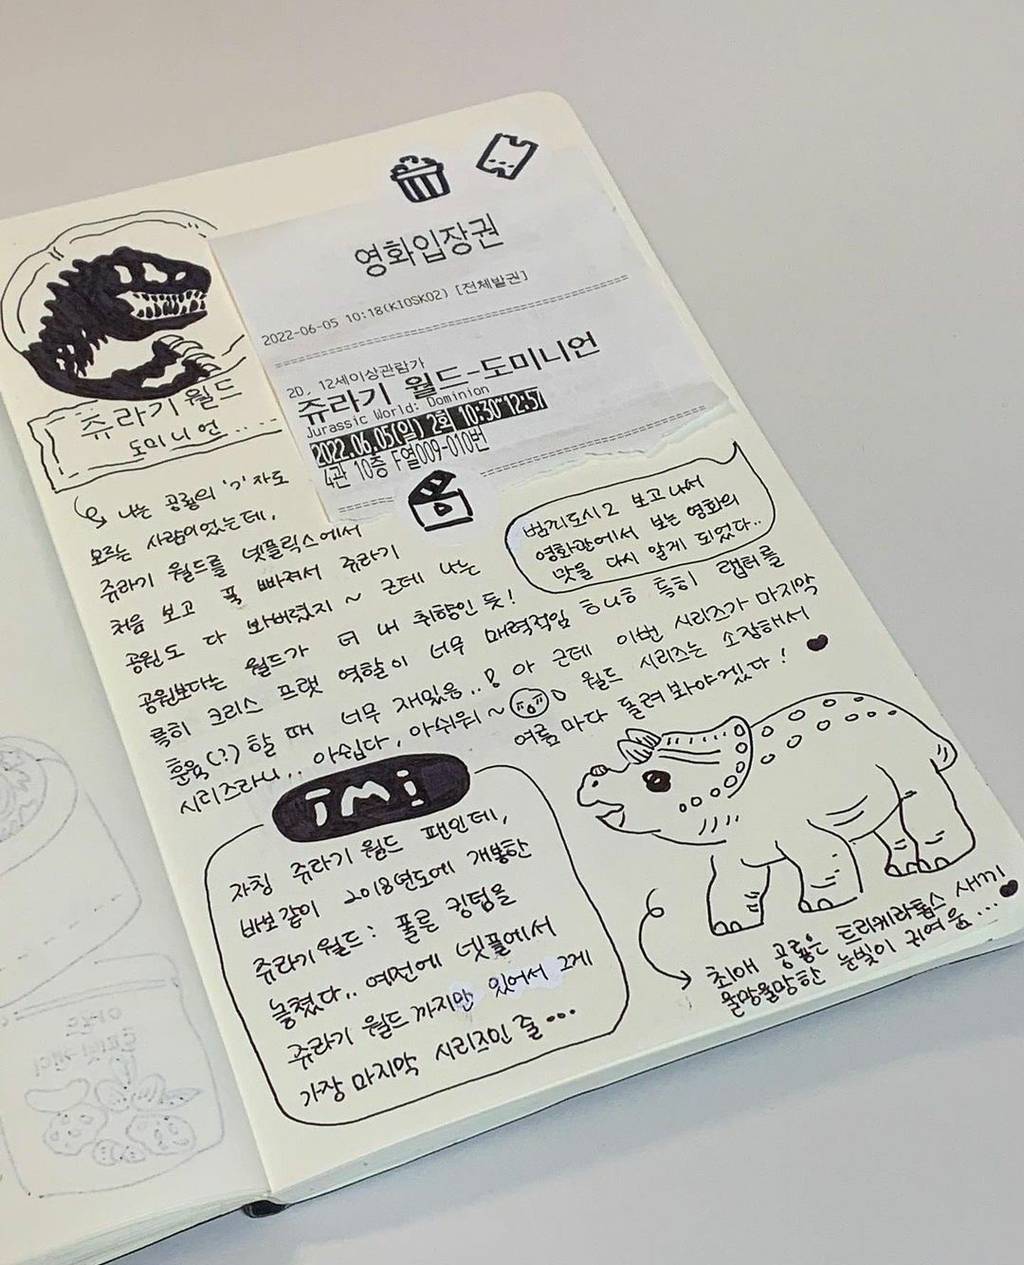 영화입장권
2022-06-05 10:18(KIOSK02) [전체발권]
2D, 12세이상관람가
쥬라기 월드-도미니언
Jurassic World: Dominion
2022.06.05(일) 2회 10:30~12:57
4관 10층 F열009-010번
쥬라기 월드
도미니언...
나는 공룡의 'ㄱ'자도
모르는 사람이었는데,
쥬라기 월드를 넷플릭스에서
처음 보고 푹 빠져서 쥬라기
공원도 다 봐버렸지 ~ 근데 나는
공원보다는 월드가 더 내 취향인 듯!
특히 크리스 프랫 역할이 너무 매력적임 ㅎㄴㅎ 특히 랩터를
훈육(?) 할 때 너무 재밌음..! 아 근데 이번 시리즈가 마지막
시리즈라니.. 아쉽다, 아쉬워~ 월드 시리즈는 소장해서
여름마다 돌려봐야겠다!
범죄도시2 보고나서
영화관에서 보는 영화의
맛을 다시 알게 되었다..
TMI
자칭 쥬라기 월드 팬인데,
바보같이 2018년도에 개봉한
쥬라기월드: 폴른 킹덤을
놓쳤다.. 여전에 넷플에서
쥬라기 월드까지만 있어서 그게
가장 마지막 시리즈인 줄...
최애 공룡은 트리케라톱스 새끼
울망울망한 눈빛이 귀여움...